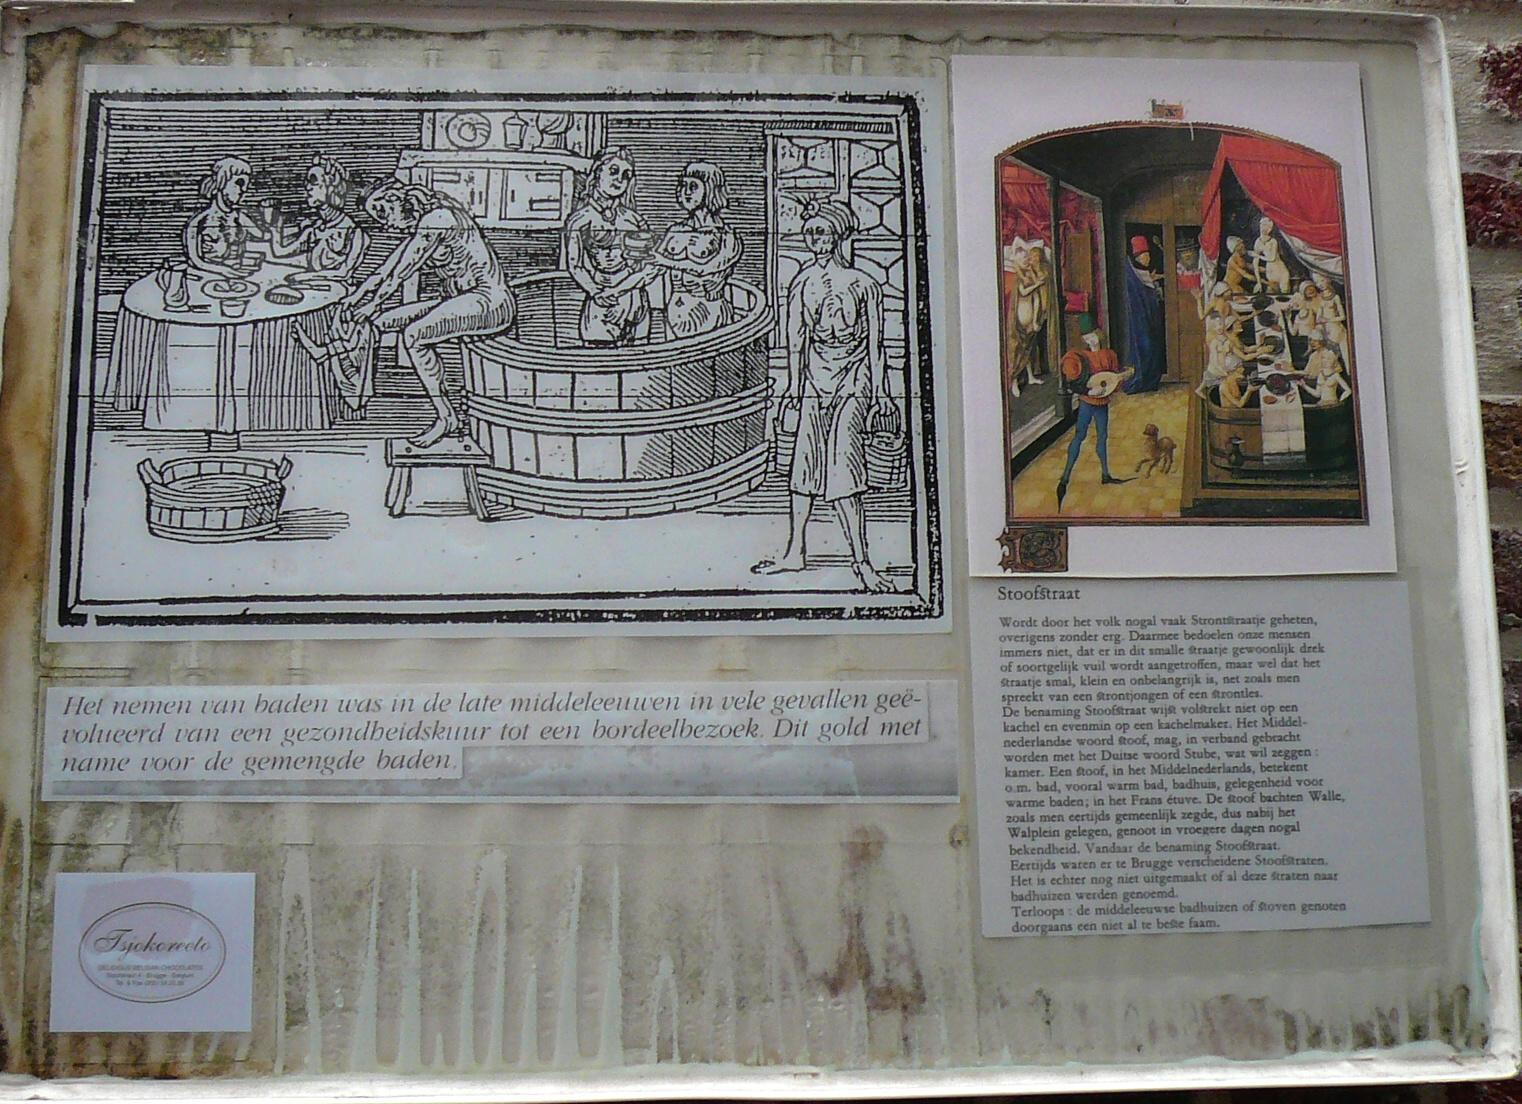 Het nemen van baden was in de late middeleeuwen in vele gevallen geë-
volueerd van een gezondheidskuur tot een bordeelbezoek. Dit gold met
name voor de gemengde baden.
Stoofstraat
Wordt door het volk nogal vaak Strontstraatje geheten,
overigens zonder erg. Daarmee bedoelen onze mensen
immers niet, dat er in dit smalle straatje gewoonlijk drek
of soortgelijk vuil wordt aangetroffen, maar wel dat het
straatje smal, klein en onbelangrijk is, net zoals men
spreekt van een strontjongen of een strontles.
De benaming Stoofstraat wijst volstrekt niet op een
kachel en evenmin op een kachelmaker. Het Middel-
nederlandse woord stoof, mag, in verband gebracht
worden met het Duitse woord Stube, wat wil zeggen :
kamer. Een stoof, in het Middelnederlands, betekent
o.m. bad, vooral warm bad, badhuis, gelegenheid voor
warme baden; in het Frans étuve. De stoof bachten Walle,
zoals men eertijds gemeenlijk zegde, dus nabij het
Walplein gelegen, genoot in vroegere dagen nogal
bekendheid. Vandaar de benaming Stoofstraat.
Eertijds waren er te Brugge verscheidene Stoofstraten.
Het is echter nog niet uitgemaakt of al deze straten naar
badhuizen werden genoemd.
Terloops : de middeleeuwse badhuizen of stoven genoten
doorgaans een niet al te beste faam.
Tsjokoreeto
DELICIOUS BELGIAN CHOCOLATES
Stoofstraat 4 - Brugge - Belgium